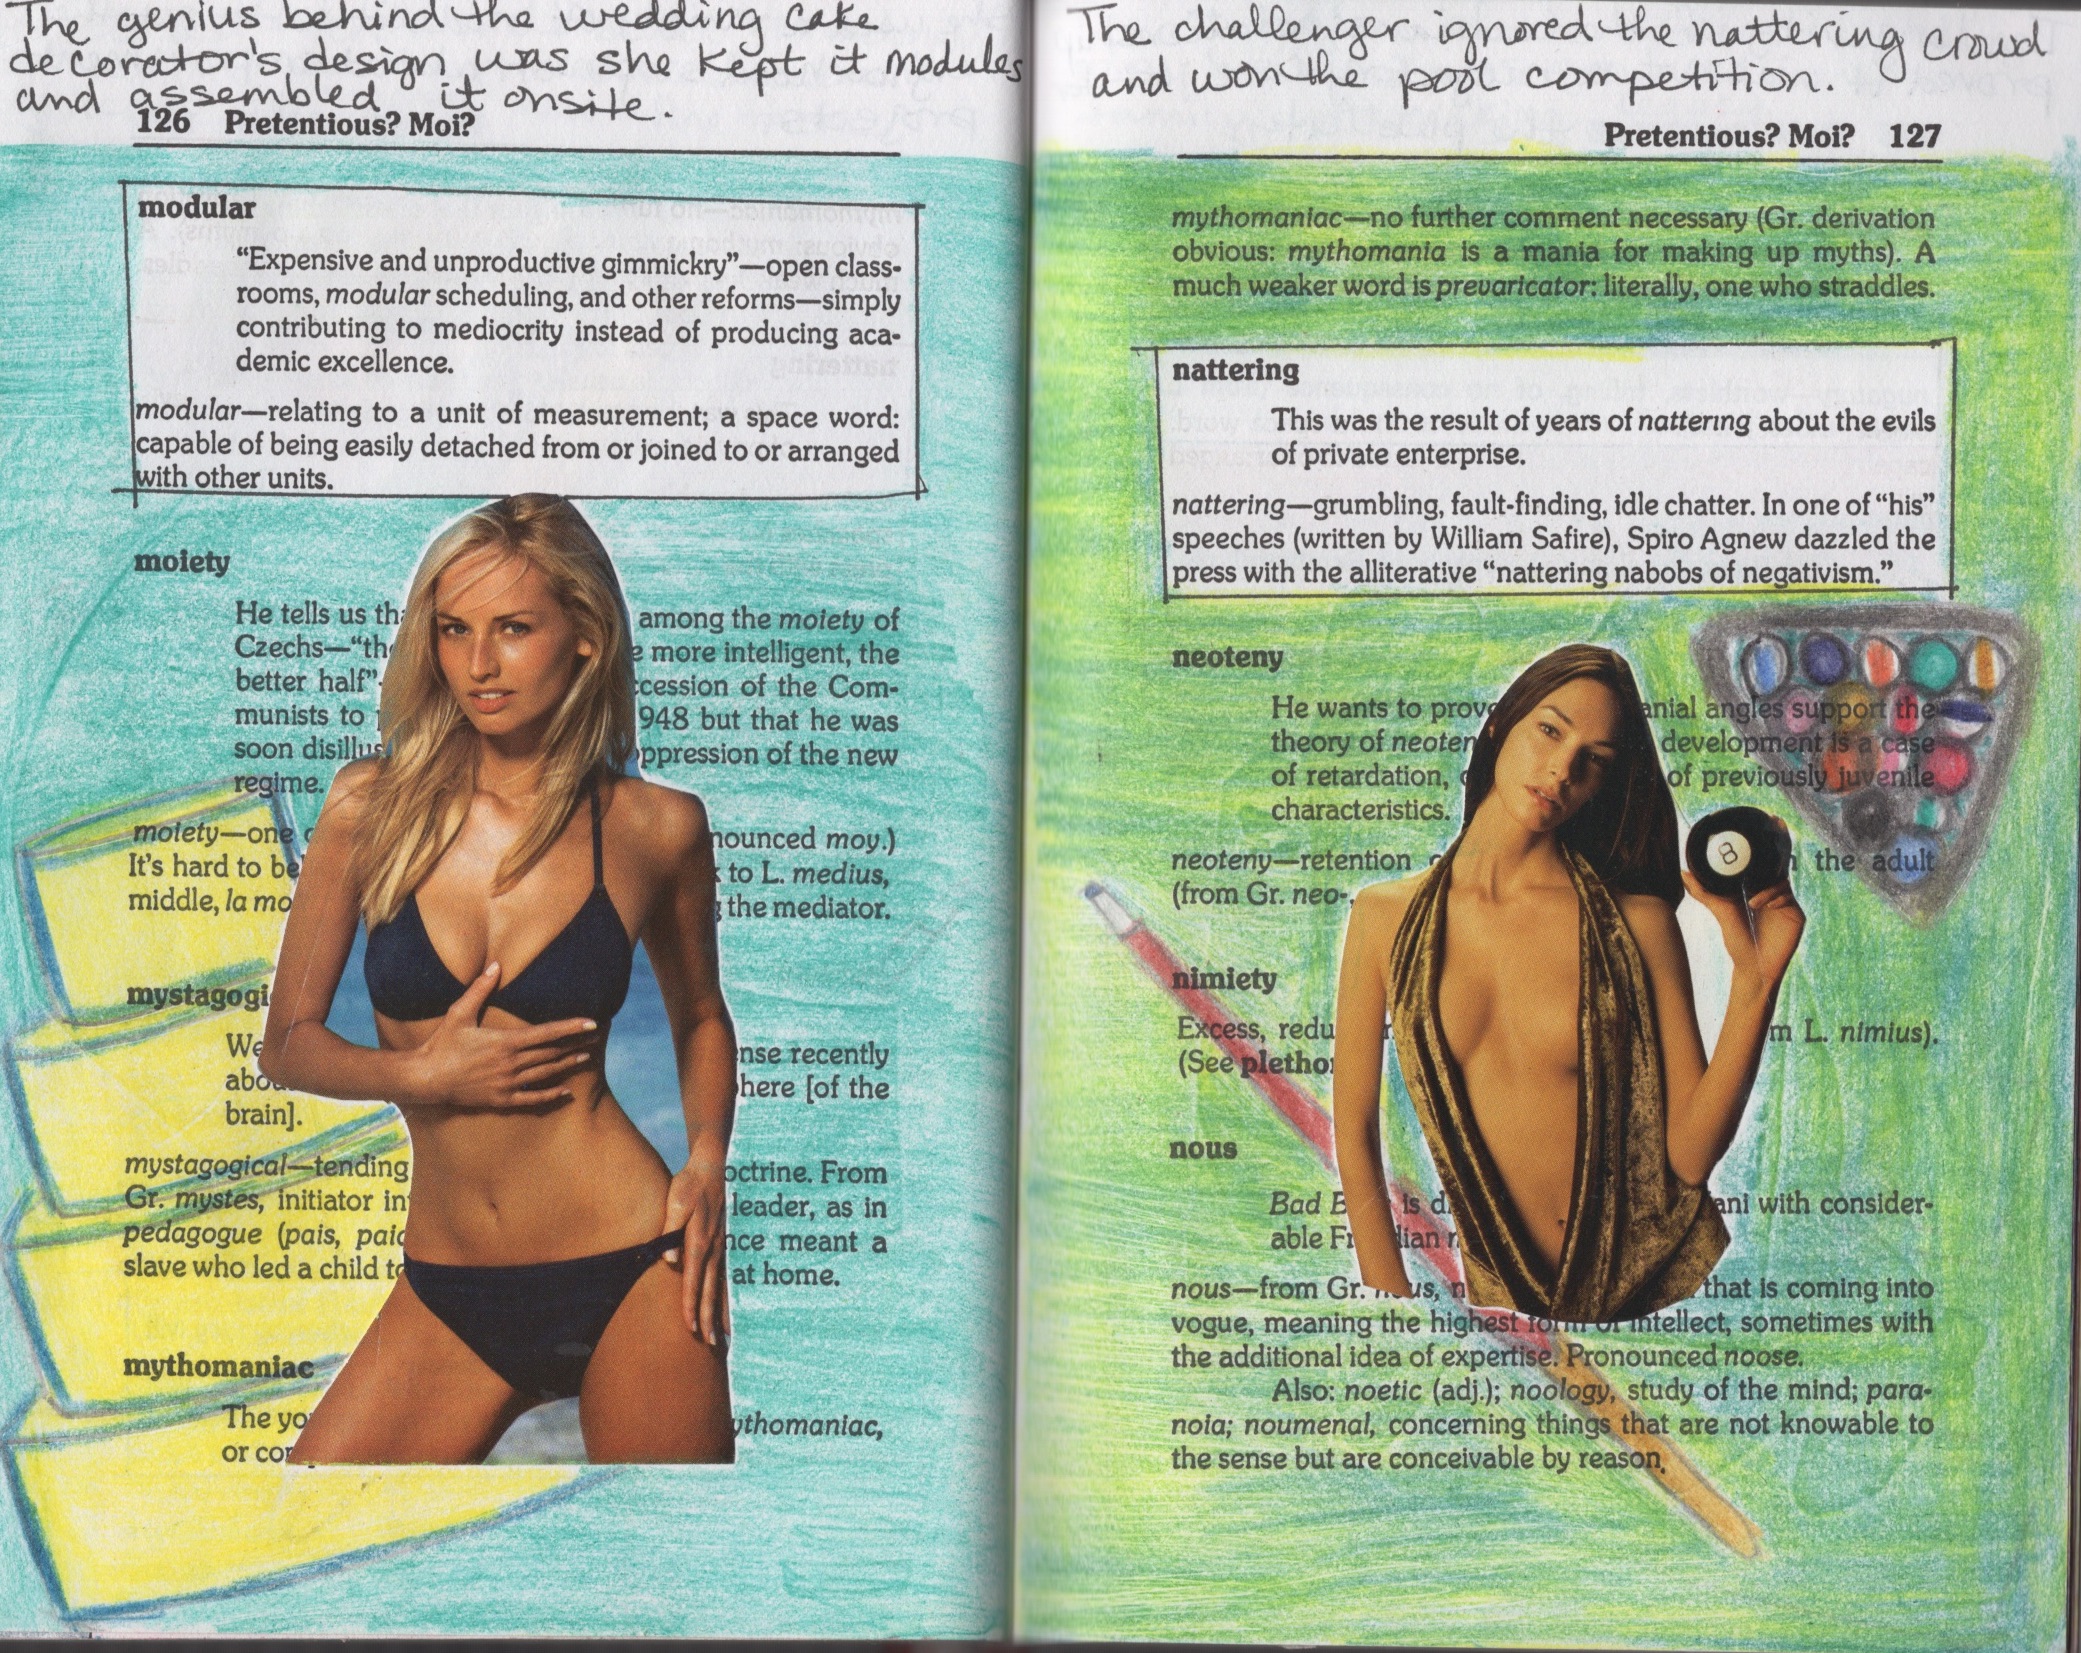 The genius behind the wedding cake
decorator's design was she kept it modules
and assembled it onsite.
126 Pretentious? Moi?
modular
“Expensive and unproductive gimmickry”—open class-
rooms, modular scheduling, and other reforms—simply
contributing to mediocrity instead of producing aca-
demic excellence.
modular—relating to a unit of measurement; a space word:
capable of being easily detached from or joined to or arranged
with other units.
moiety
He tells us among the moiety of
Czechs—“ more intelligent, the
better half” of the Com-
munists to 948 but that he was
soon of the new
regime.
moiety—one moy.)
It's hard to to L. medius,
middle, la the mediator.
We recently
[of the
brain].
mystagogical—tending From
Gr. mystes, initiator leader, as in
pedagogue (pais, meant a
slave who led a child at home.
mythomaniac
The
or
The challenger ignored the nattering crowd
and won the pool competition.
Pretentious? Moi? 127
mythomaniac—no further comment necessary (Gr. derivation
obvious: mythomania is a mania for making up myths). A
much weaker word is prevaricator: literally, one who straddles.
nattering
This was the result of years of nattering about the evils
of private enterprise.
nattering—grumbling, fault-finding, idle chatter. In one of “his”
speeches (written by William Safire), Spiro Agnew dazzled the
press with the alliterative “nattering nabobs of negativism.”
neoteny
He wants to prove angles support the
theory of development is a case
of retardation, of previously juvenile
characteristics.
8
neoteny—retention the adult
(from Gr. neo-,
nimiety
Excess, L. nimius).
(See
nous
Bad is with consider-
able
nous—from Gr. that is coming into
vogue, meaning the highest form of intellect, sometimes with
the additional idea of expertise. Pronounced noose.
Also: noetic (adj.); noology, study of the mind; para-
noia; noumenal, concerning things that are not knowable to
the sense but are conceivable by reason.